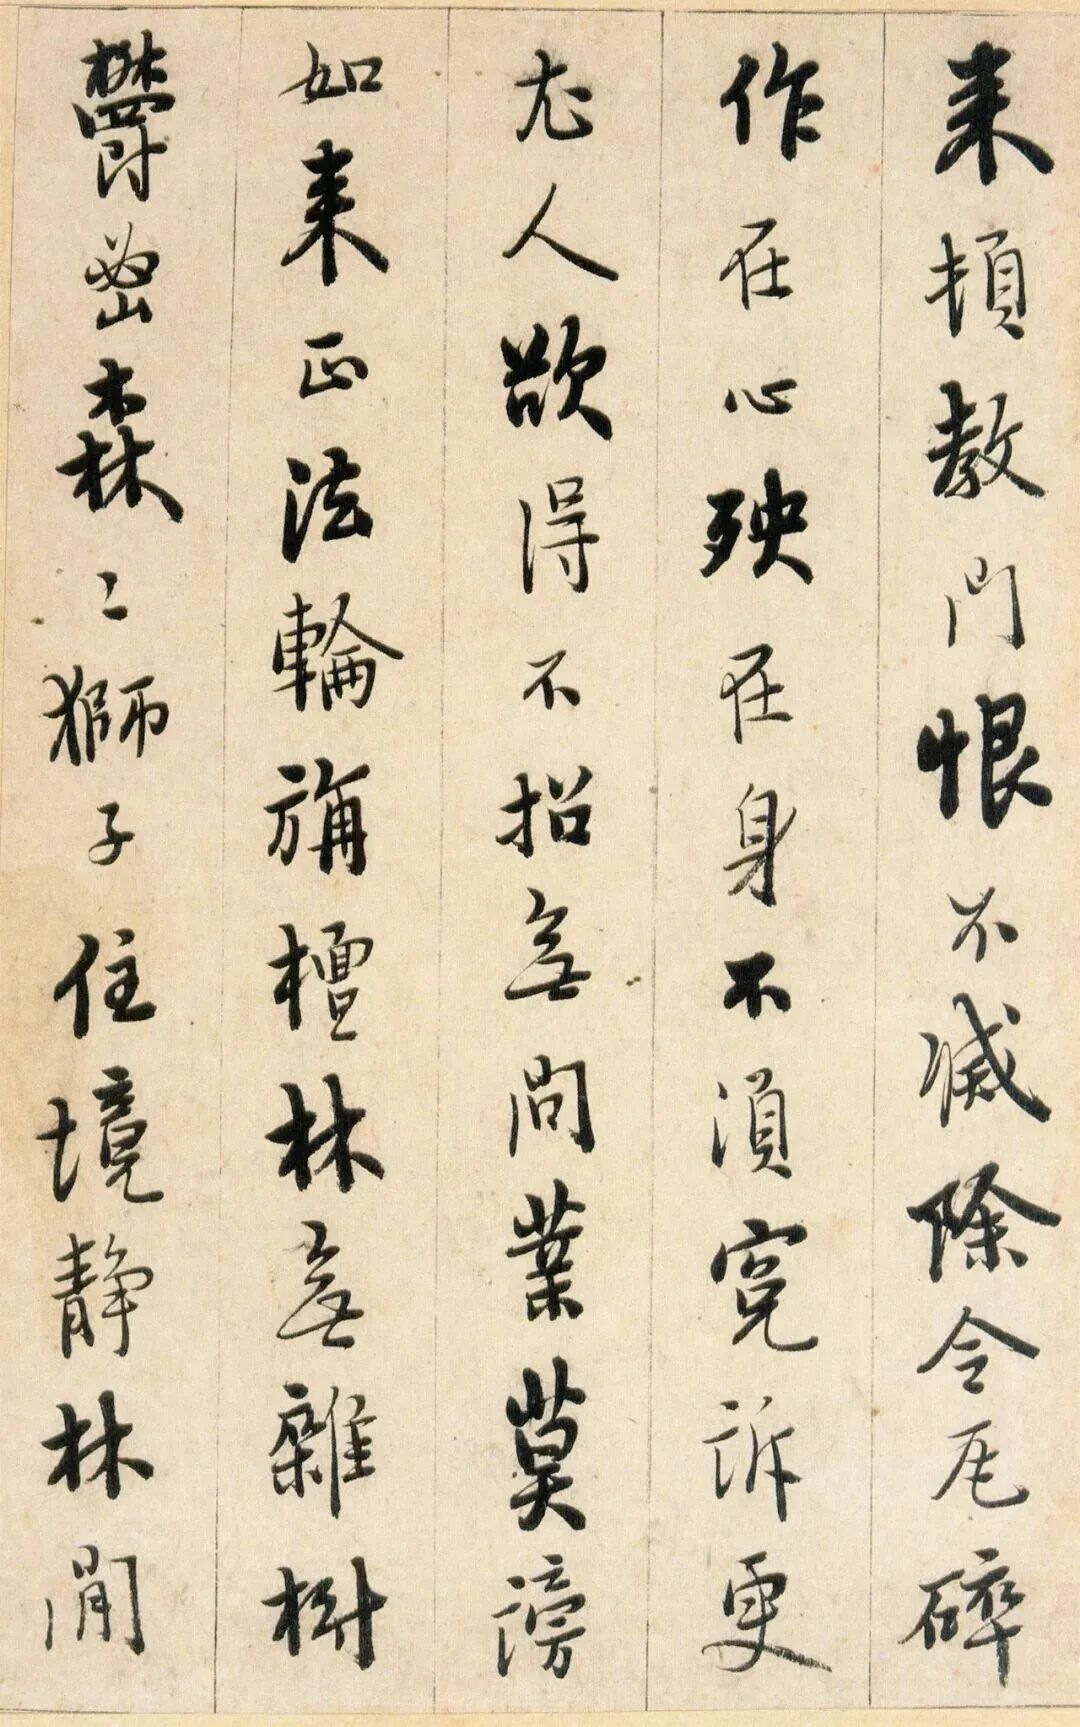 来頓教門恨不滅除令瓦碎
作在心殃在身不須冤訴更
尤人欲得不招無間業莫謗
如来正法輪旃檀林無雜樹
欝密森〻獅子住境静林閒